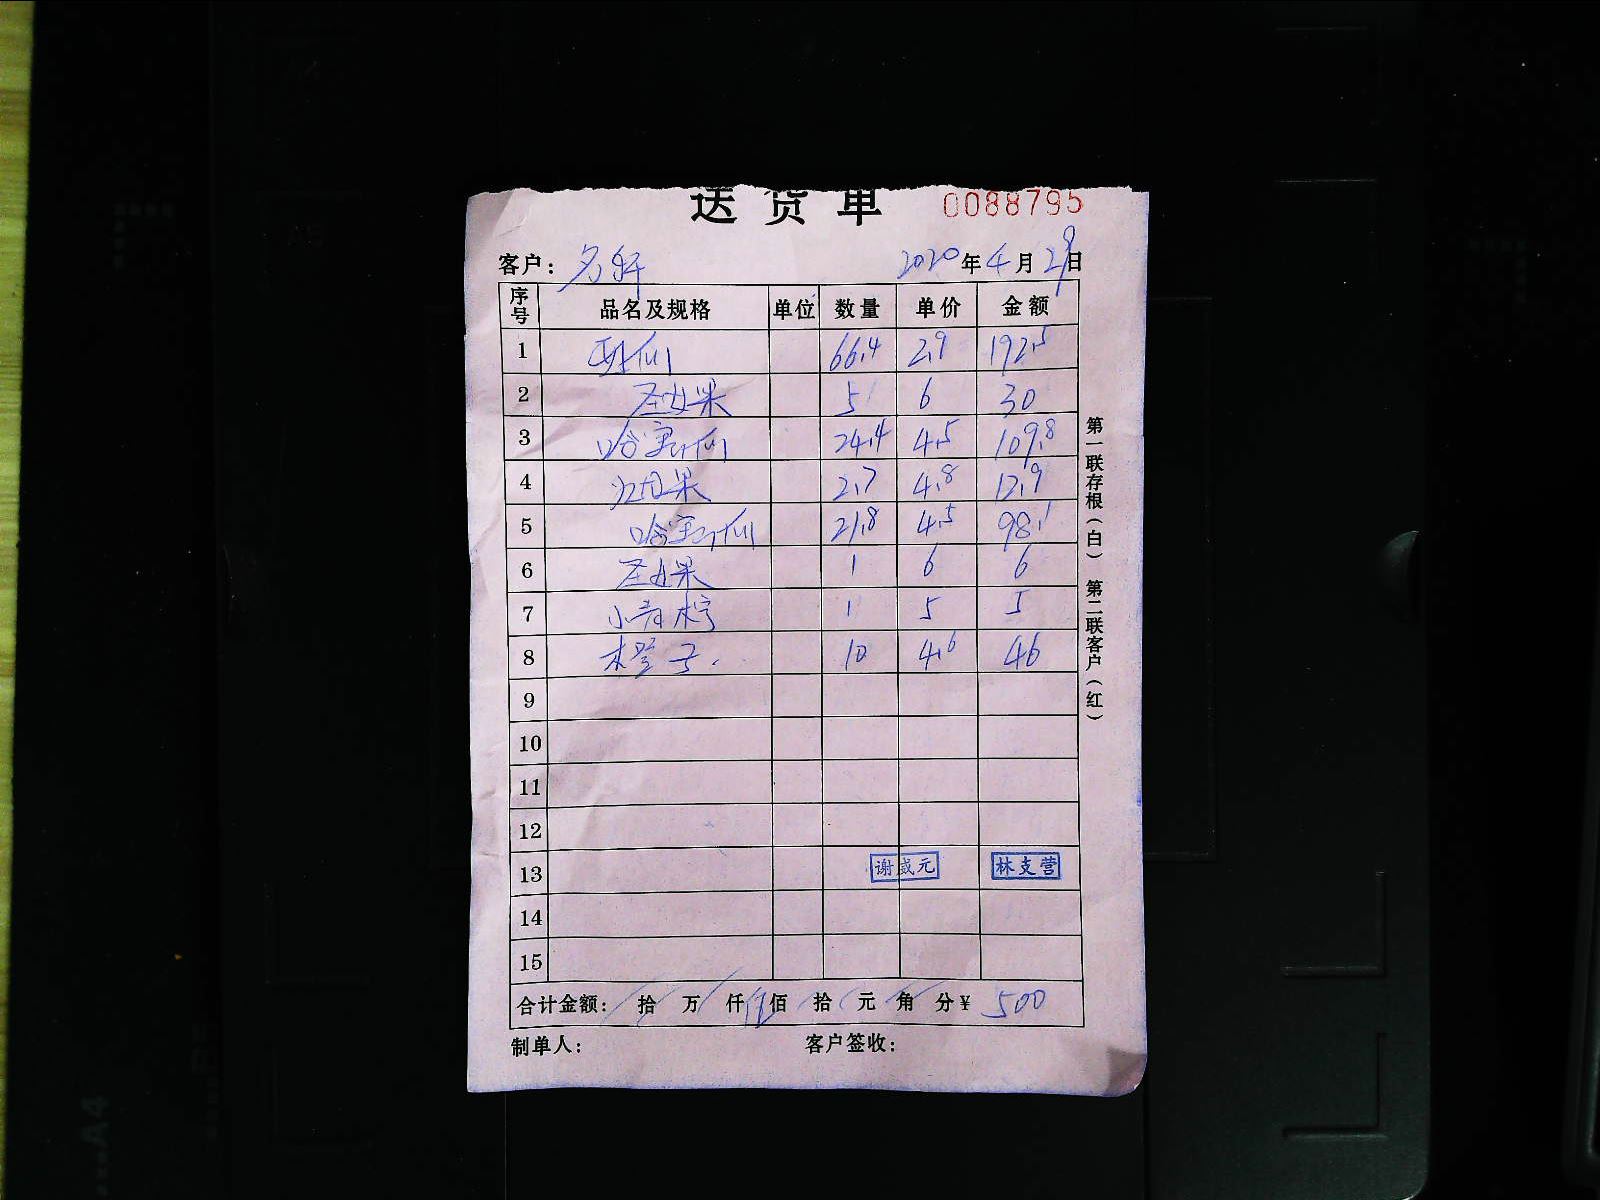 送货单 0088795
客户： 名轩 2020年4月29日
序号 品名及规格 单位 数量 单价 金额
1 66.4 2.9 192.5
2 圣女果 5 6 30
3 哈密瓜 24.4 4.5 109.8
4 2.7 4.8 12.9
5 哈密瓜 21.8 4.5 98.1
6 圣女果 1 6 6
7 小青柠 1 5 5
8 橙子 10 4.6 46
9
10
11
12
13 谢成元 林支营
14
15
合计金额： 拾 万 仟 伍佰 拾 元 角 分￥ 500
制单人： 客户签收：
第一联存根（白） 第二联客户（红）